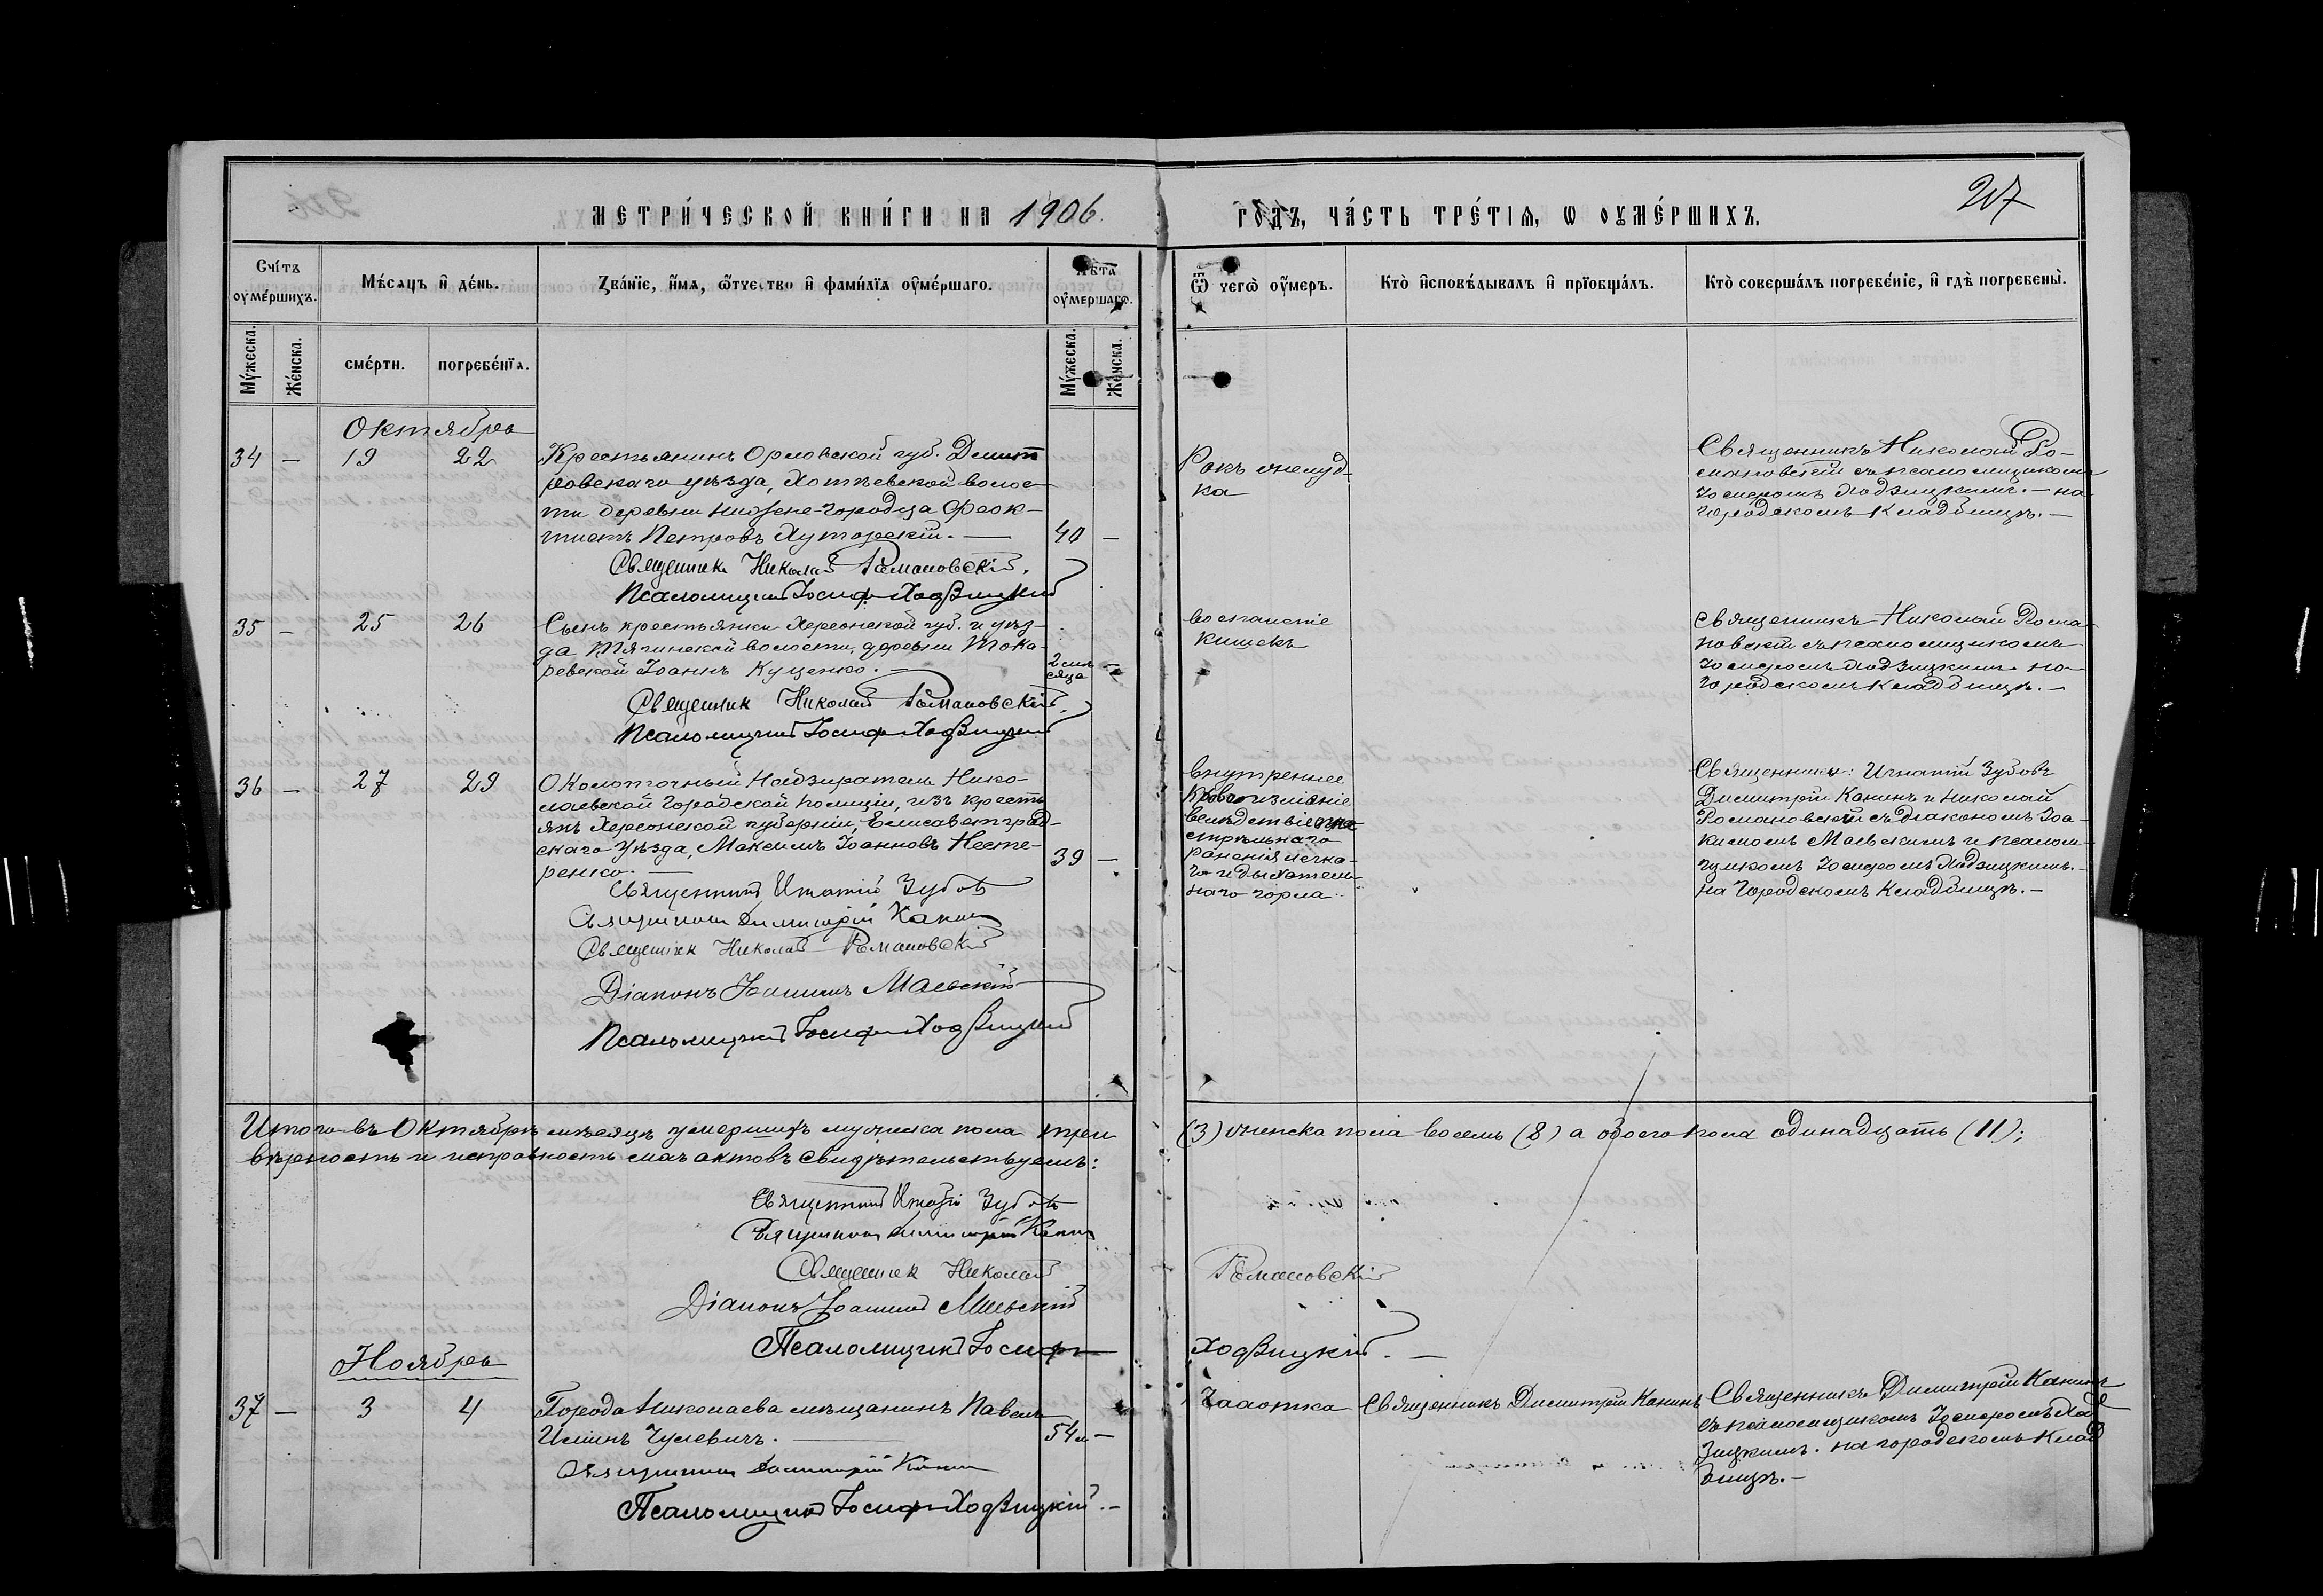 МЕТРИ́ЧЕСКОЙ КНИ́ГИ НА 1906.
ГО́ДЪ, ЧА́СТЬ ТРЕ́ТІѦ, Ѡ ОУ҆МЕ́РШИХЪ.
217
Счётъ оу҆ме́ршихъ.
Мѣ́сѧцъ и҆ де́нь.
Зва́нїе, и҆́мѧ, ѻ҆́тчество и҆ фами́лїѧ оу҆ме́ршагѡ.
Лѣ́та оу҆ме́ршагѡ.
Ѿ чегѡ̀ оу҆́меръ.
Кто̀ и҆сповѣ́дывалъ и҆ прїобща́лъ.
Кто̀ соверша́лъ погребе́нїе, и҆ гдѣ̀ погребены̀.
Му́жеска.
Же́нска.
сме́рти.
погребе́нїѧ.
Му́жеска.
Же́нска.
Октябрь
34 — 19 22
Крестьянинъ Орловской губ. Димит
ровскаго уѣзда, Хотѣевской волос
ти деревни Нижне-Городца Феок-
тистъ Петровъ Хуторскій. —
40 —
Священникъ Николай Романовскій.
Псаломщикъ Іосифъ Ходзицкій
Ракъ желуд-
ка
Священникъ Николай Ро-
мановскій съ псаломщикомъ
Іосифомъ Ходзицкимъ. — на
городскомъ кладбищѣ. —
35 — 25 26
Сынъ крестьянки Херсонской губ. и уѣз-
да Тягинской волости, деревни Тока-
ревской Іоаннъ Куценко. —
2 мѣ
сяца —
Священникъ Николай Романовскій.
Псаломщикъ Іосифъ Ходзицкій
воспаленіе
кишекъ
Священникъ Николай Рома
новскій съ псаломщикомъ
Іосифомъ Ходзицкимъ. на
городскомъ кладбищѣ. —
36 — 27 29
Околоточный Надзиратель Нико-
лаевской Городской полиціи, изъ кресть
янъ Херсонской губерніи, Елисаветград-
скаго уѣзда, Максимъ Іоанновъ Несте-
ренко. —
39 —
Священникъ Игнатій Зубовъ
Священникъ Димитрій Канинъ
Священникъ Николай Романовскій
Діаконъ Іоакимъ Маевскій
Псаломщикъ Іосифъ Ходзицкій
внутреннее
кровоизліяніе
вслѣдствіе огне
стрѣльнаго
раненія легка-
го и дыхатель
наго горла
Священники: Игнатій Зубовъ
Димитрій Канинъ и Николай
Романовскій съ діакономъ Іоа-
кимомъ Маевскимъ и псалом-
щикомъ Іосифомъ Ходзицкимъ. —
на Городскомъ кладбищѣ. —
Итого въ Октябрѣ мѣсяцѣ умершихъ мужеска пола три
(3) женска пола восемь (8) а обоего пола одинадцать (11);
вѣрность и исправность актовъ свидѣтельствуемъ:
Священникъ Игнатій Зубовъ
Священникъ Димитрій Канинъ
Священникъ Николай Романовскій
Діаконъ Іоакимъ Маевскій
Псаломщикъ Іосифъ Ходзицкій. —
Ноябрь
37 — 3 4
Города Николаева мѣщанинъ Павелъ
Ильинъ Гулевичъ. —
54 л —
Священникъ Димитрій Канинъ
Псаломщикъ Іосифъ Ходзицкій. —
Чахотка
Священникъ Димитрій Канинъ
Священникъ Димитрій Канинъ
съ псаломщикомъ Іосифомъ Ход
зицкимъ. на городскомъ клад
бищѣ. —